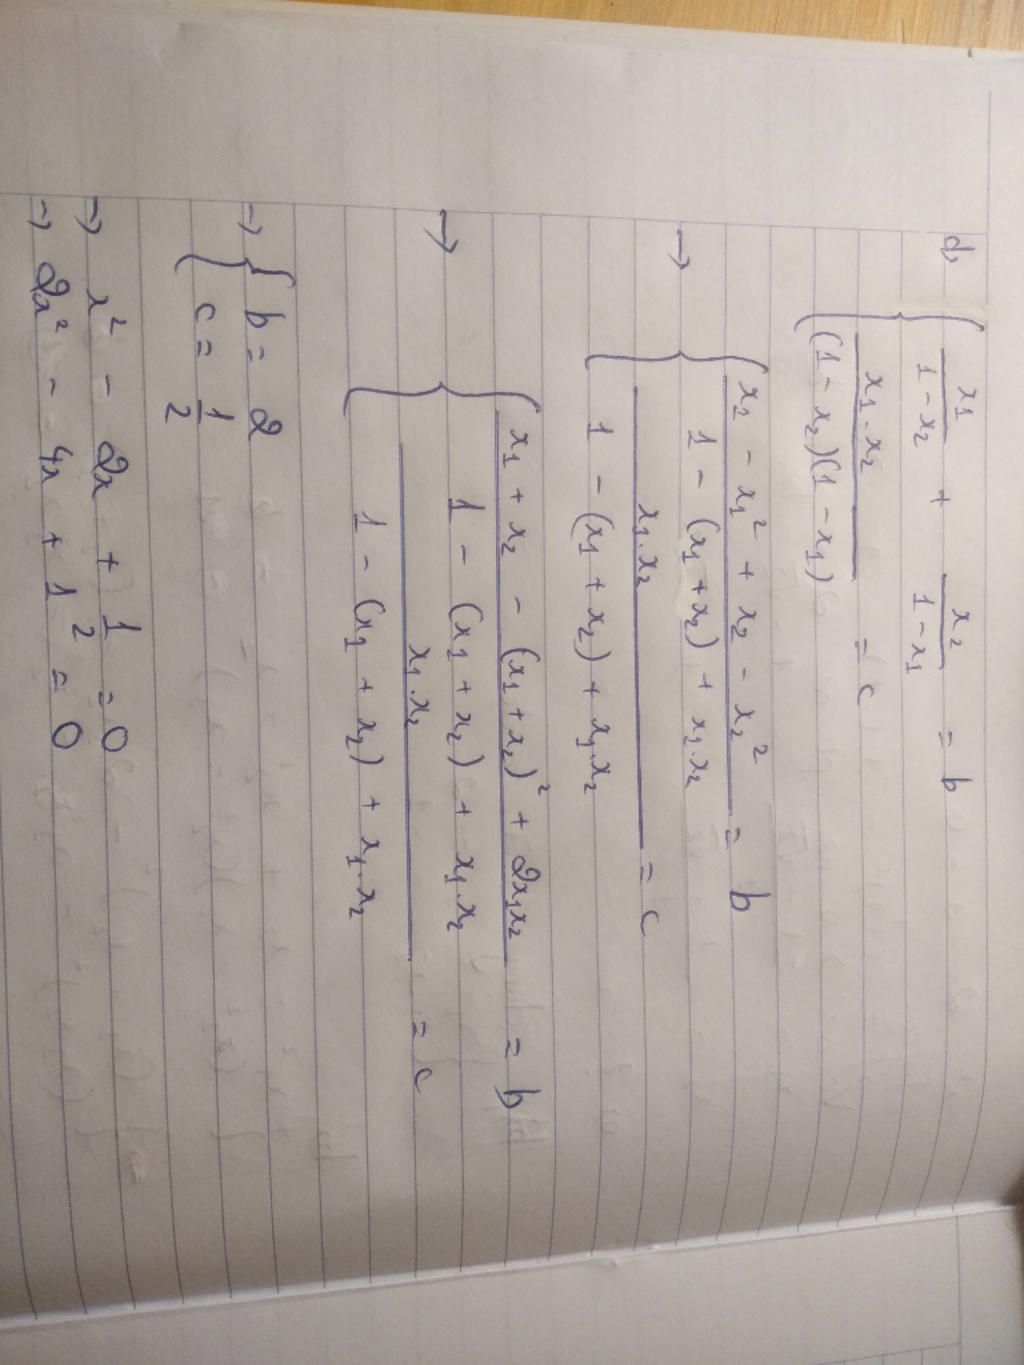 d, { x₁/(1 - x₂) + x₂/(1 - x₁) = b
x₁.x₂/((1 - x₂)(1 - x₁)) = c
→ { (x₁ - x₁² + x₂ - x₂²)/(1 - (x₁ + x₂) + x₁.x₂) = b
x₁.x₂/(1 - (x₁ + x₂) + x₁.x₂) = c
→ { (x₁ + x₂ - (x₁ + x₂)² + 2x₁x₂)/(1 - (x₁ + x₂) + x₁.x₂) = b
x₁.x₂/(1 - (x₁ + x₂) + x₁.x₂) = c
→ { b = 2
c = 1/2
→ x² - 2x + 1/2 = 0
→ 2x² - 4x + 1 = 0